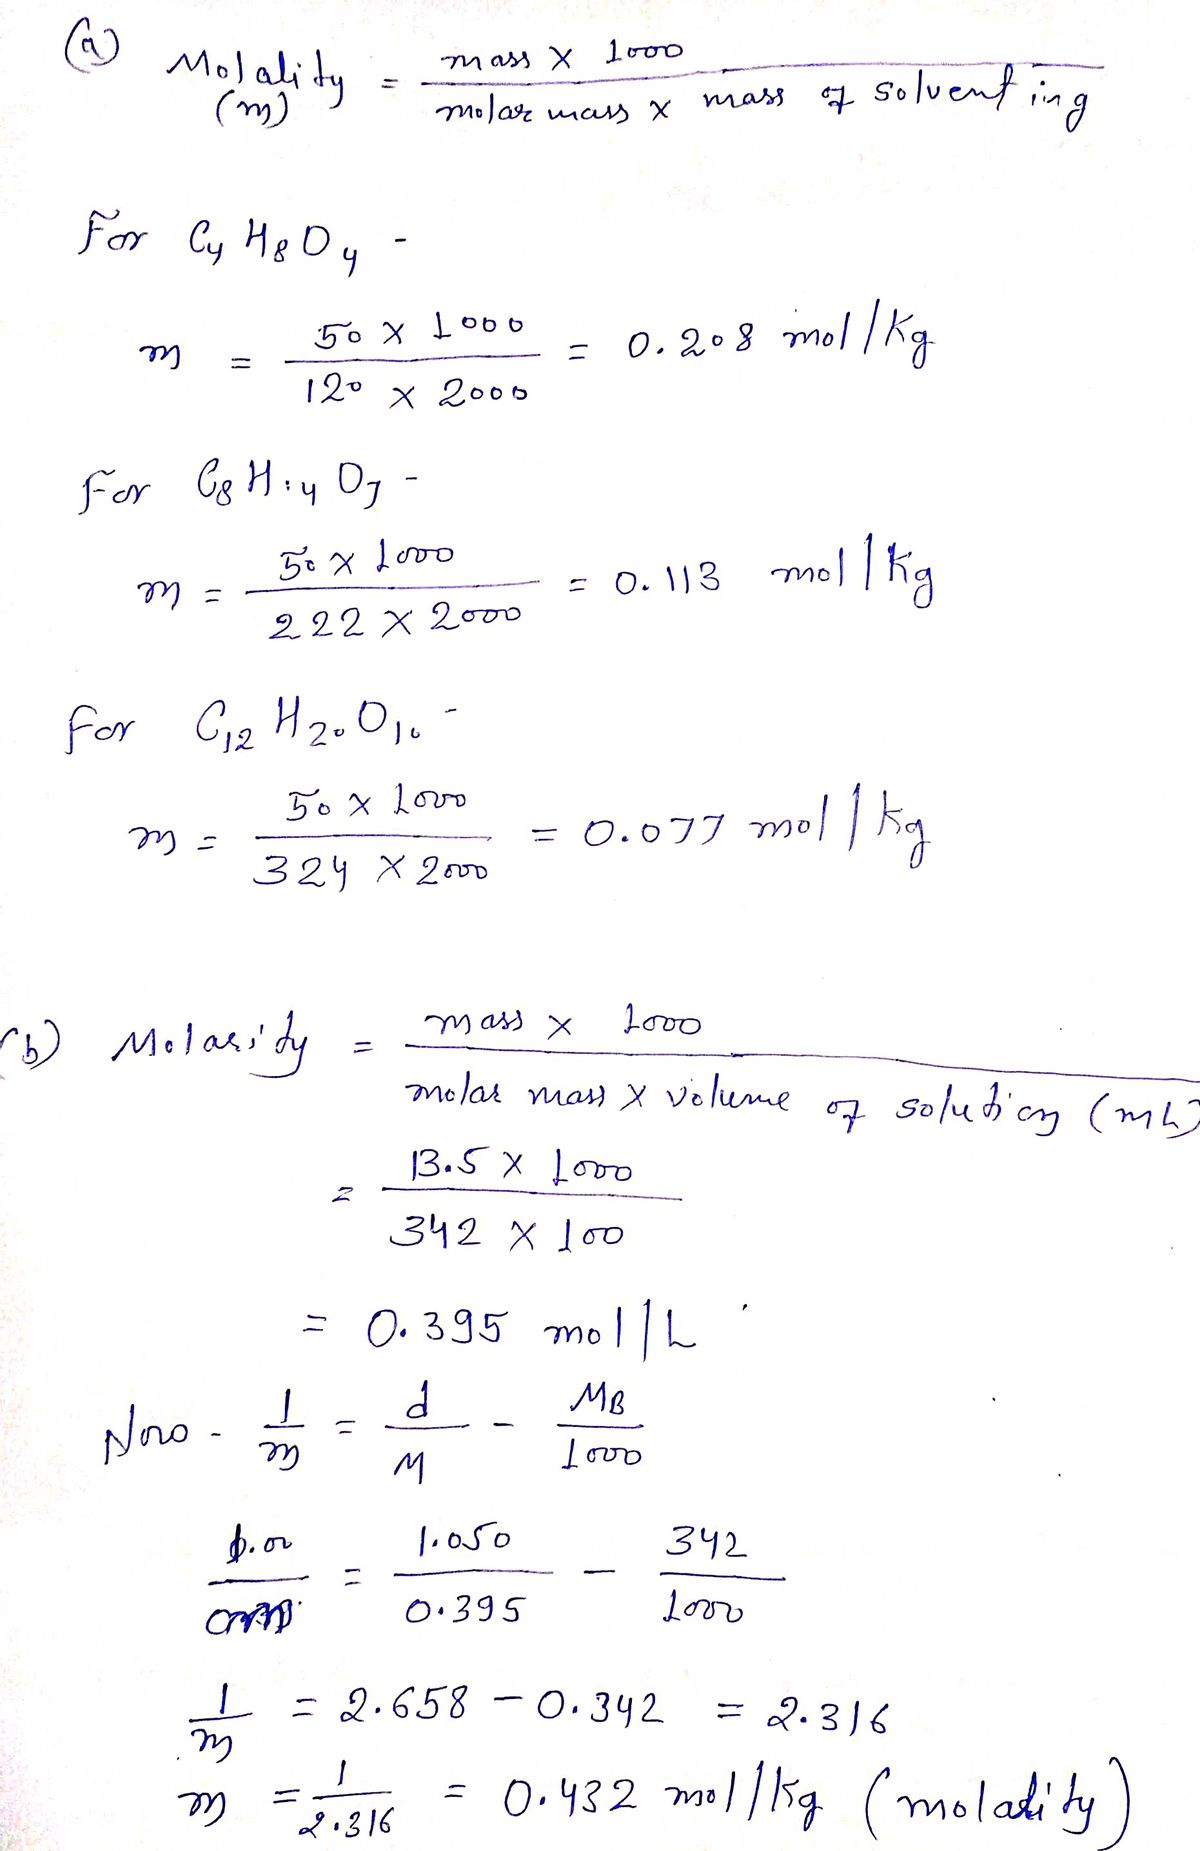 (a) Molality (m) = mass × 1000 / molar mass × mass of solvent in g
For C4H8O4 -
m = 50 × 1000 / 120 × 2000 = 0.208 mol/kg
For C8H14O7 -
m = 50 × 1000 / 222 × 2000 = 0.113 mol/kg
For C12H20O10 -
m = 50 × 1000 / 324 × 2000 = 0.077 mol/kg
(b) Molarity = mass × 1000 / molar mass × volume of solution (mL)
= 13.5 × 1000 / 342 × 100
= 0.395 mol/L
Now - 1/m = d/M - MB/1000
= 1.050/0.395 - 342/1000
1/m = 2.658 - 0.342 = 2.316
m = 1/2.316 = 0.432 mol/kg (molality)